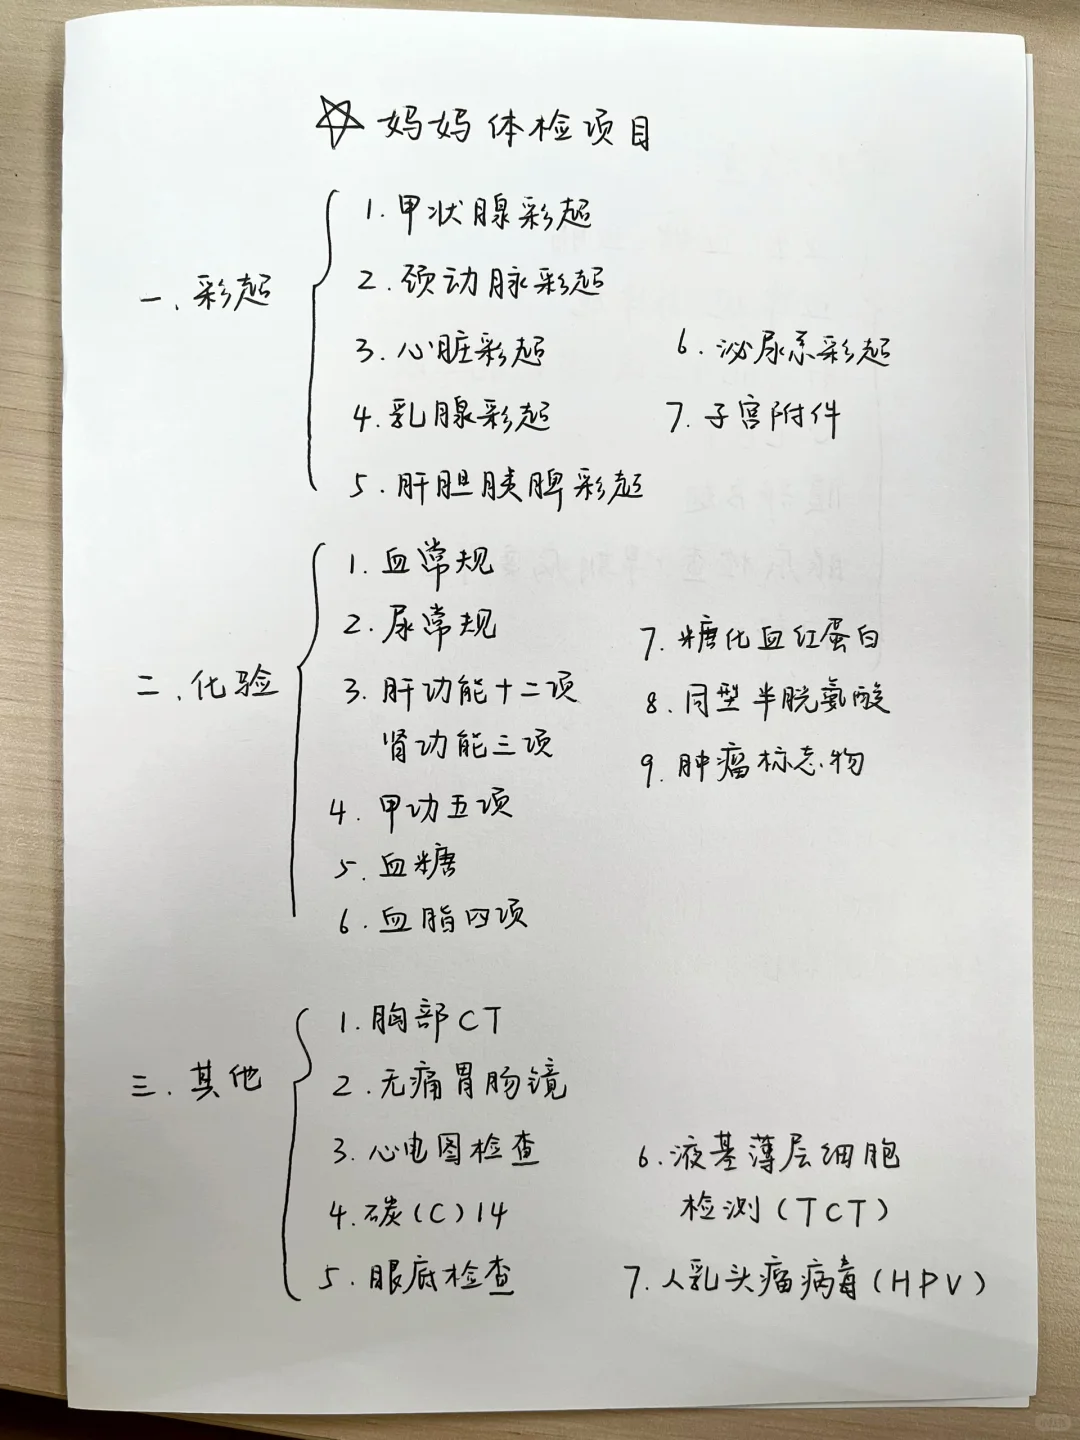 ☆ 妈妈体检项目
一、彩超
1.甲状腺彩超
2.颈动脉彩超
3.心脏彩超
4.乳腺彩超
5.肝胆胰脾彩超
6.泌尿系彩超
7.子宫附件
二、化验
1.血常规
2.尿常规
3.肝功能十二项
肾功能三项
4.甲功五项
5.血糖
6.血脂四项
7.糖化血红蛋白
8.同型半胱氨酸
9.肿瘤标志物
三、其他
1.胸部CT
2.无痛胃肠镜
3.心电图检查
4.碳(C)14
5.眼底检查
6.液基薄层细胞
检测(TCT)
7.人乳头瘤病毒(HPV)